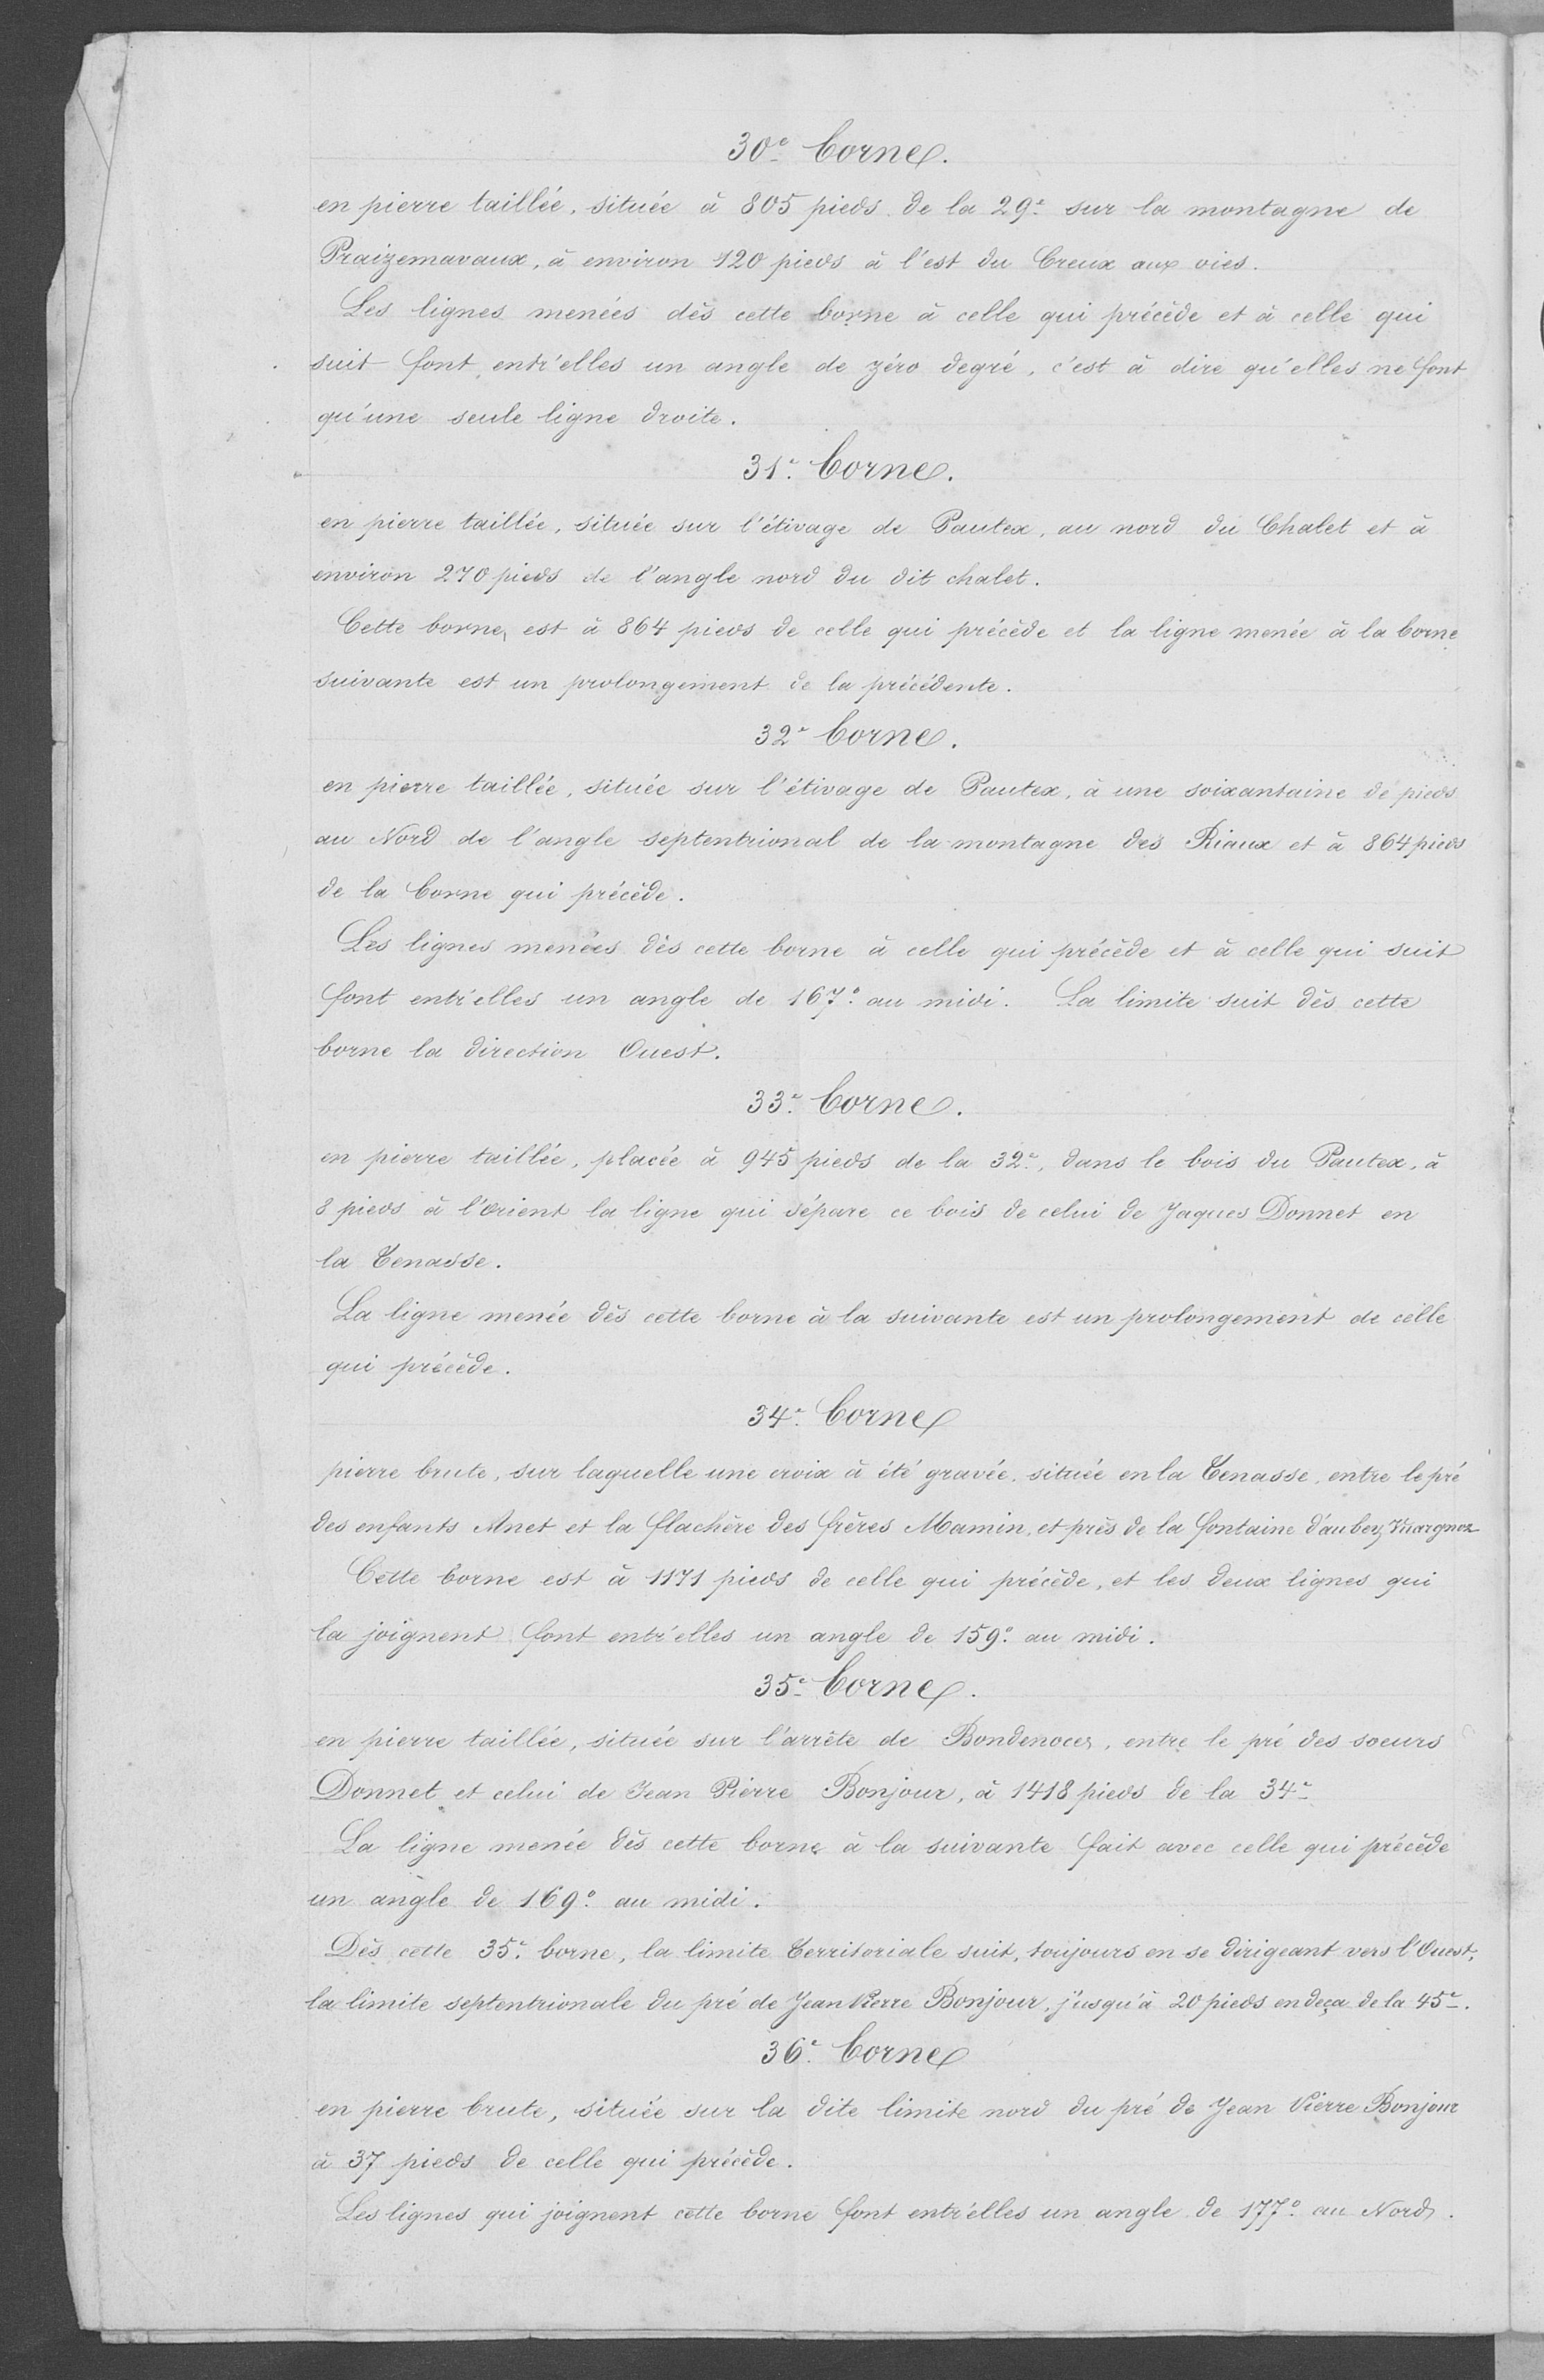 30.e borne.
en pierre taillée, située à 805 pieds de la 29.e sur la montagne de
Praizemavaux, à environ 120 pieds à l'est du Creux aux oies.
Les lignes menées dès cette borne à celle qui précède et à celle qui
suit font entr'elles un angle de zéro degré, c'est à dire qu'elles ne font
qu'une seule ligne droite.
31.e borne.
en pierre taillée, située sur l'étivage de Pautex, au nord du Chalet et à
environ 270 pieds de l'angle nord du dit chalet.
Cette borne, est à 864 pieds de celle qui précède et la ligne menée à la borne
suivante est un prolongement de la précédente.
32.e borne.
en pierre taillée, située sur l'étivage de Pautex, à une soixantaine de pieds
au Nord de l'angle septentrional de la montagne des Riaux et à 864 pieds
de la borne qui précède.
Les lignes menées dès cette borne à celle qui précède et à celle qui suit
font entr'elles un angle de 167.° au midi. La limite suit dès cette
borne la direction Ouest.
33.e borne.
en pierre taillée, placée à 945 pieds de la 32.e, dans le bois du Pautex, à
8 pieds à l'orient la ligne qui sépare ce bois de celui de Jaques Donnet en
la Tenasse.
La ligne menée dès cette borne à la suivante est un prolongement de celle
qui précède.
34.e borne
pierre brute, sur laquelle une croix à été gravée, située en la Tenasse, entre le pré
des enfants Anet et la flachère des frères Mamin, et près de la fontaine d'aubex, Vuargnoz
Cette borne est à 1171 pieds de celle qui précède, et les deux lignes qui
la joignent font entr'elles un angle de 159.° au midi.
35.e borne.
en pierre taillée, située sur l'arrête de Bondenoces, entre le pré des soeurs
Donnet et celui de Jean Pierre Bonjour, à 1418 pieds de la 34.e
La ligne menée dès cette borne à la suivante fait avec celle qui précède
un angle de 169.° au midi.
Dès cette 35.e borne, la limite territoriale suit, toujours en se dirigeant vers l'Ouest,
la limite septentrionale du pré de Jean Pierre Bonjour, jusqu'à 20 pieds en deça de la 45.e.
36.e borne
en pierre brute, située sur la dite limite nord du pré de Jean Pierre Bonjour
à 37 pieds de celle qui précède.
Les lignes qui joignent cette borne font entr'elles un angle de 177.° au Nord.